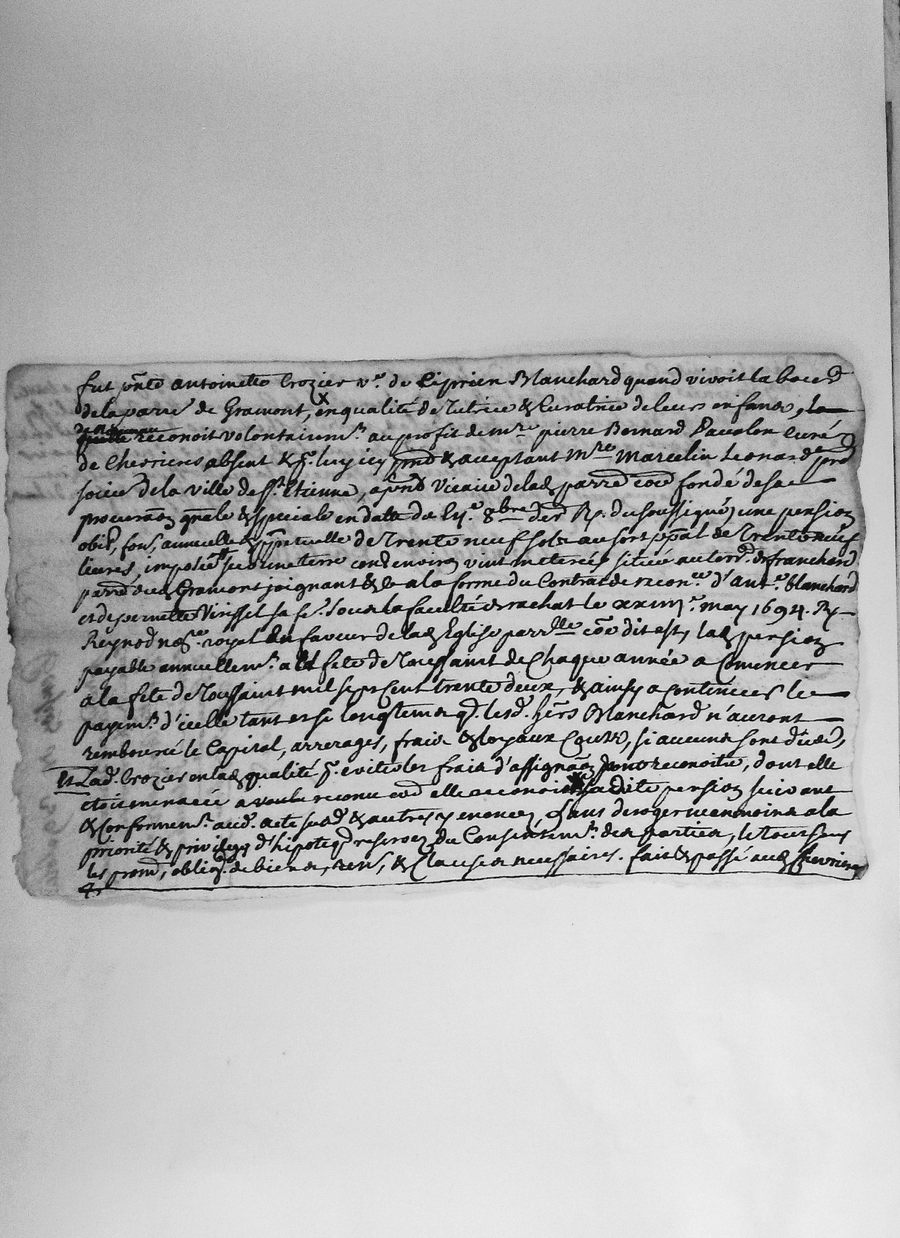 fut pñte antoinette Crozier v.e de Ciprien Blanchard quand vivoit laboced
de la parre de Gramont, en qualité de Tutrice & Curatrice de leurs enfans, la
reconoit volontairem.t au profit de m.re pierre Bernard Curé
de Chevrieres absent & p.r luy icy pñt & acceptant M.re Marcelin Leonard pré
socier de la ville de s.t Etienne, apñt Vicaire delad parre coe fondé de sa
procuraõn gñale & speciale en datte du 8.bre der R. du soussigné, une pension
obit, fons, annuelle & ppetuelle de Trente neuf sols au sort ppal de Trente neuf
livres, imposée sur une terre cont environ vint meterés située au terr.d de franchard
parre dud Gramont joignant & a la forme du Contrat de recon.ce d'ant.e blanchard
et de pernette Virissel sa fe. sous la faculté de rachat le xxiiij.e may 1694. R.
Reynod no.re royal en faveur de lad Eglise parr.lle coe dit est, lad pension
payable annuellem.t a la fete de Toussaint de Chaque année a Comencer
a la fete de Toussaint mil sept cent trente deux, & ainsy a continuer le
payem.t d'icelle tant et si longtems q. lesd. hers Blanchard n'auront
remboursé le Capital, arrerages, frais & loyaux Couts, si aucuns sont dûs,
et Lad. Crozier en lad qualité p.r eviter les frais d'assignaõn reconoitre, dont elle
etoit menacée a voulu reconu coe elle reconoit ladite pension suivant
& Conformem.t aud. acte susd & autres y enoncés, sans deroger neanmoins a la
priorité & privilege d'hipoteq reservés Du Consentem.t des parties, le tout sous
les prom, oblig. de biens, rens, & Clauses necessaires. fait & passé aud Chevrieres